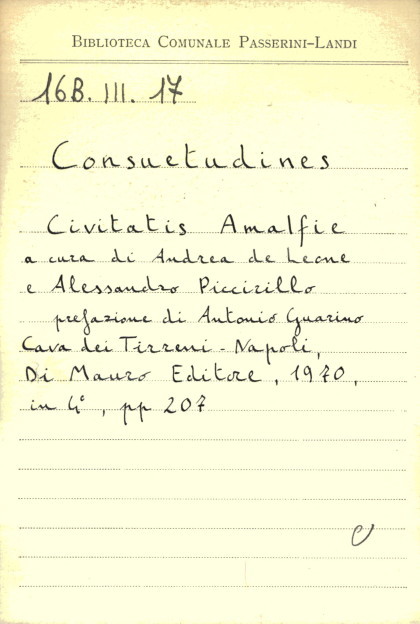 BIBLIOTECA COMUNALE PASSERINI-LANDI
16B. III. 17
Consuetudines
Civitatis Amalfie
a cura di Andrea de Leone
e Alessandro Piccirillo
prefazione di Antonio Guarino
Cava dei Tirreni - Napoli,
Di Mauro Editore, 1970,
in 4°, pp 207